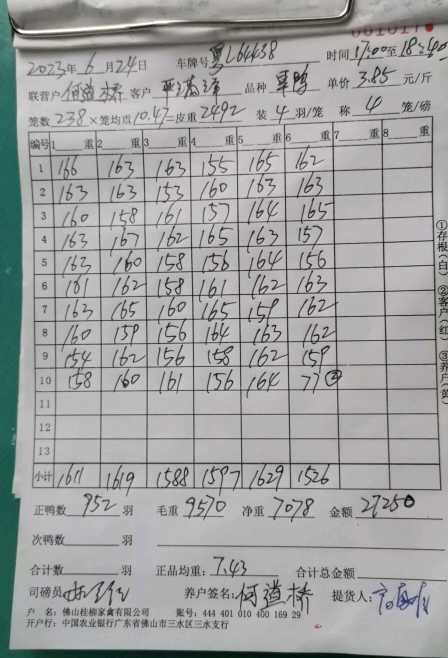 001017
2023年6月24日 车牌号 粤L64438 时间 17:00至18:40
联营户 何道桥 客户 品种 单鸭 单价 3.85 元/斤
笼数 238 × 笼均重 10.47 = 皮重 2492 装 4 羽/笼 称 4 笼/磅
编号 1 重 2 重 3 重 4 重 5 重 6 重 7 重 8 重
1 166 163 163 155 165 162
2 163 163 153 160 163 163
3 160 158 161 157 164 165
4 163 167 162 165 163 157
5 163 160 158 156 164 156
6 161 162 158 161 162 163
7 163 165 160 165 159 162
8 160 159 156 164 163 162
9 154 162 156 158 162 159
10 158 160 161 156 164 77②
11
12
13
小计 1611 1619 1588 1597 1629 1526
正鸭数 952 羽 毛重 9570 净重 7078 金额 27250
次鸭数 羽
合计数 羽 正品均重: 7.43 合计总金额
司磅员 养户签名: 何道桥 提货人:
户 名: 佛山桂柳家禽有限公司 账号: 444 401 010 400 169 29
开户行: 中国农业银行广东省佛山市三水区三水支行
①存根(白) ②客户(红) ③养户(黄)